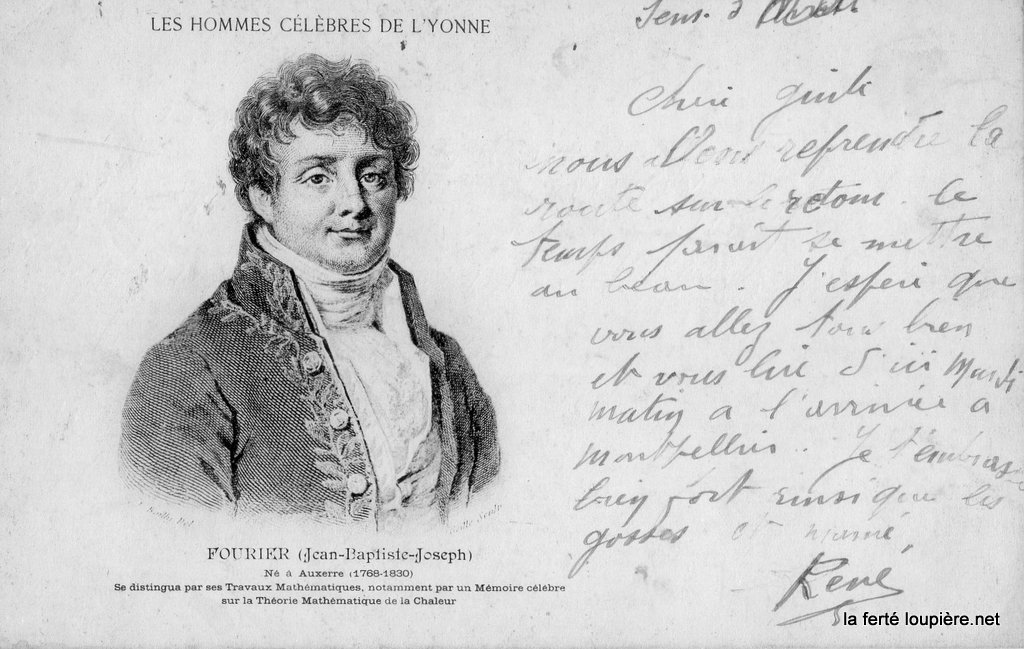 LES HOMMES CÉLÈBRES DE L'YONNE
FOURIER (Jean-Baptiste-Joseph)
Né à Auxerre (1768-1830)
Se distingua par ses Travaux Mathématiques, notamment par un Mémoire célèbre
sur la Théorie Mathématique de la Chaleur
nous allons reprendre la
route sur le retour. le
temps parait se mettre
au beau. J'espère que
vous allez tous bien
et vous lire d'ici Mardi
matin a l'arrivée a
Montpellier. Je t'embrasse
bien fort ainsi que les
gosses et mamé,
René
la ferté loupière.net